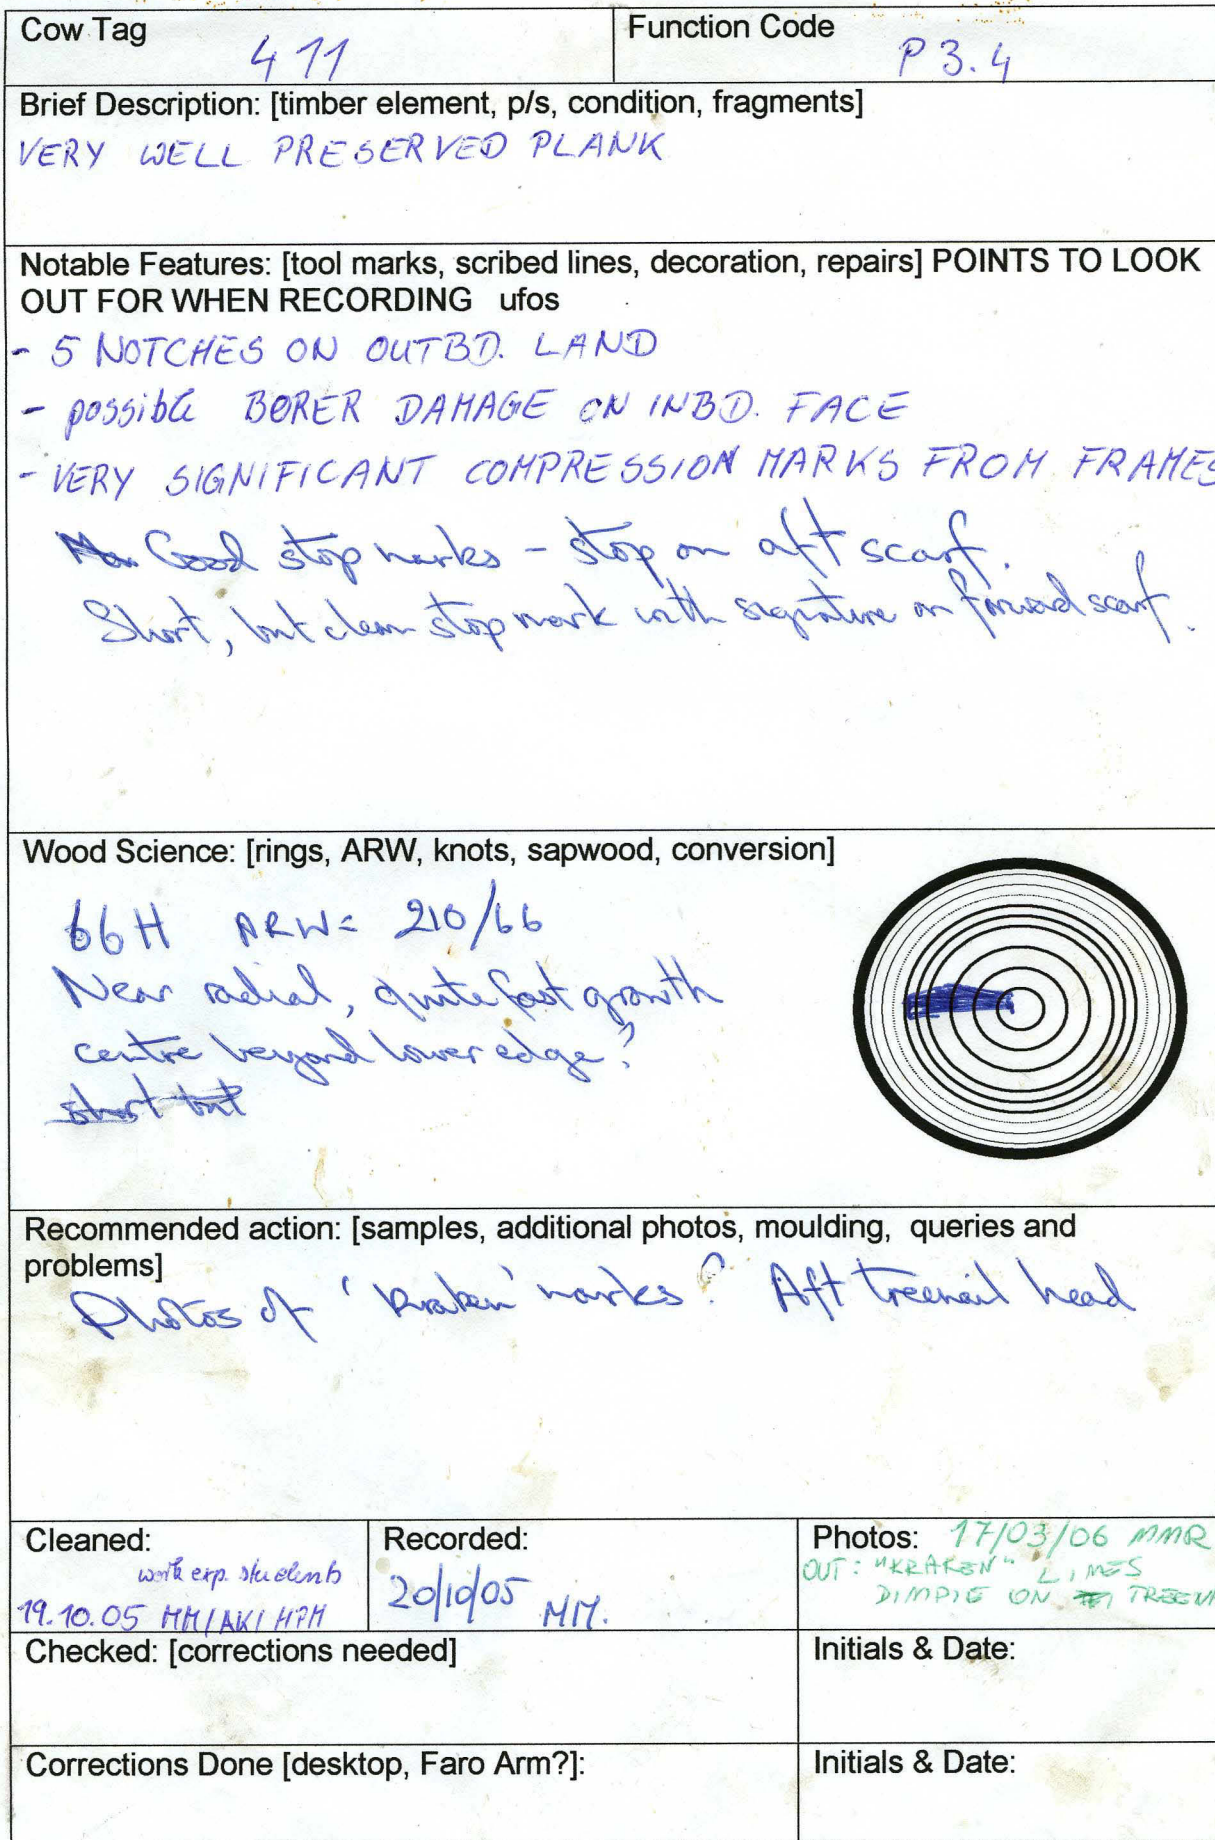 Cow Tag
411
Function Code
P3.4
Brief Description: [timber element, p/s, condition, fragments]
VERY WELL PRESERVED PLANK
Notable Features: [tool marks, scribed lines, decoration, repairs] POINTS TO LOOK
OUT FOR WHEN RECORDING ufos
- 5 NOTCHES ON OUTBD. LAND
- possible BORER DAMAGE ON INBD. FACE
- VERY SIGNIFICANT COMPRESSION MARKS FROM FRAMES
Good stop marks - stop on aft scarf.
Short, but clean stop mark with signature on forward scarf.
Wood Science: [rings, ARW, knots, sapwood, conversion]
66H ARW= 210/66
Near radial, quite fast growth
centre beyond lower edge?
short but
Recommended action: [samples, additional photos, moulding, queries and
problems]
Photos of 'kraken' marks? Aft treenail head
Cleaned:
work exp. students
19.10.05 MM/AK/HPM
Recorded:
20/10/05 MM.
Photos: 17/03/06 MMR
OUT: "KRAKEN" LINES
DIMPLE ON TREEN
Checked: [corrections needed]
Initials & Date:
Corrections Done [desktop, Faro Arm?]:
Initials & Date: